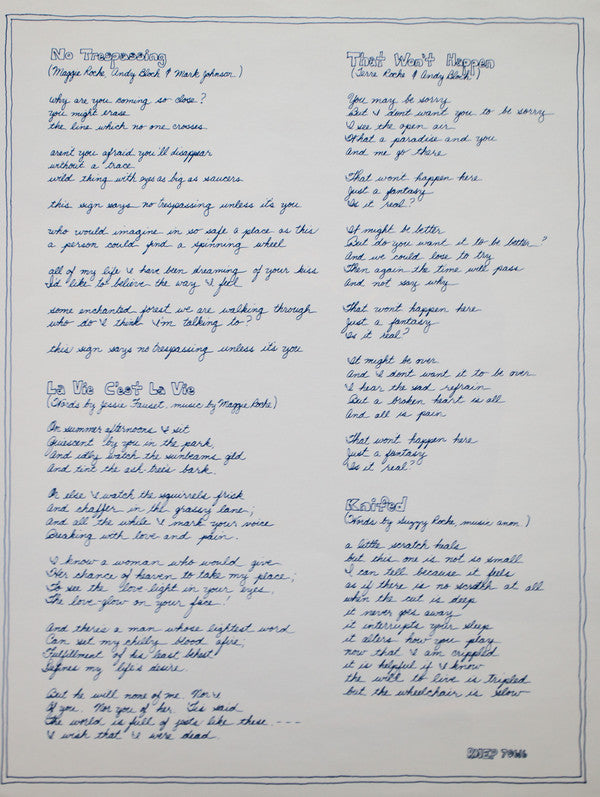 No Trespassing
(Maggie Roche, Andy Bloch & Mark Johnson)
why are you coming so close?
you might erase
the line which no one crosses
aren't you afraid you'll disappear
without a trace
wild thing with eyes as big as saucers
this sign says no trespassing unless it's you
who would imagine in so safe a place as this
a person could find a spinning wheel
all of my life I have been dreaming of your kiss
I'd like to believe the way I feel
some enchanted forest we are walking through
who do I think I'm talking to?
this sign says no trespassing unless it's you
La Vie C'est La Vie
(Words by Jessie Fauset, music by Maggie Roche)
On summer afternoons I sit
Quiescent by you in the park,
And idly watch the sunbeams gild
And tint the ash-trees bark.
Or else I watch the squirrels frisk
And chaffer in the grassy lane;
And all the while I mark your voice
Breaking with love and pain.
I know a woman who would give
Her chance of heaven to take my place;
To see the love light in your eyes,
The love-glow on your face!
And there's a man whose lightest word
Can set my chilly blood afire;
Fulfillment of his least behest
Defines my life's desire.
But he will none of me. Nor I
Of you. Nor you of her. 'Tis said
The world is full of jests like these ----
I wish that I were dead.
That Won't Happen
(Terre Roche & Andy Bloch)
You may be sorry
But I don't want you to be sorry
I see the open air
What a paradise and you
And me go there
That won't happen here
Just a fantasy
Is it real?
It might be better
But do you want it to be better?
And we could lose to try
Then again the time will pass
And not say why
That won't happen here
Just a fantasy
Is it real?
It might be over
And I don't want it to be over
I hear the sad refrain
But a broken heart is all
And all is pain
That won't happen here
Just a fantasy
Is it real?
Knifed
(Words by Suzzy Roche, music anon.)
a little scratch heals
but this one is not so small
I can tell because it feels
as if there is no scratch at all
when the cut is deep
it never goes away
it interrupts your sleep
it alters how you play
now that I am crippled
it is helpful if I know
the will to live is tripled
but the wheelchair is slow